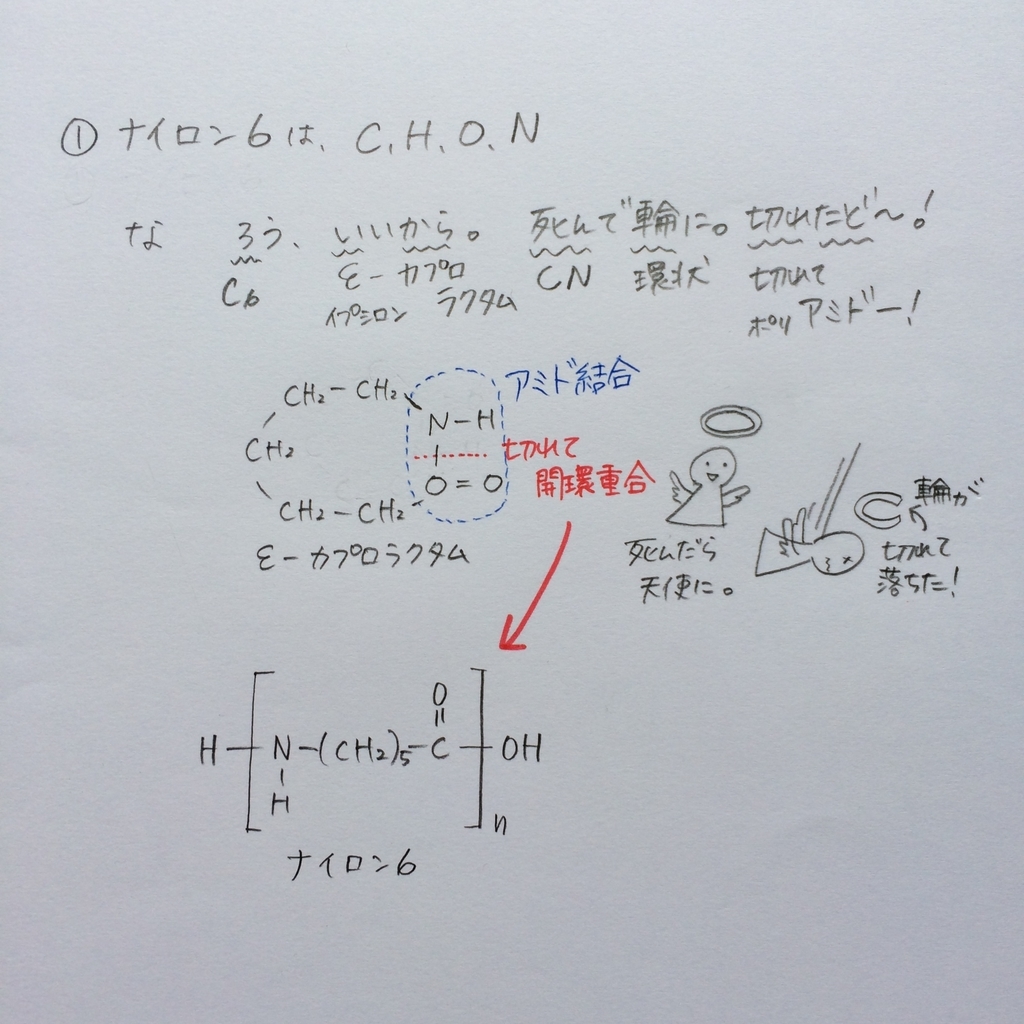 ① ナイロン6は、C,H,O,N
な ろう、いいから。 死んで輪に。切れたど〜!
C6 ε-カプロ CN 環状 切れて
イプシロン ラクタム ポリアミドー!
CH2-CH2 アミド結合
N-H
CH2 切れて
開環重合
O=O
CH2-CH2
ε-カプロラクタム
輪が
切れて
落ちた!
死んだら
天使に。
O
H-[N-(CH2)5-C]-OH
H
n
ナイロン6